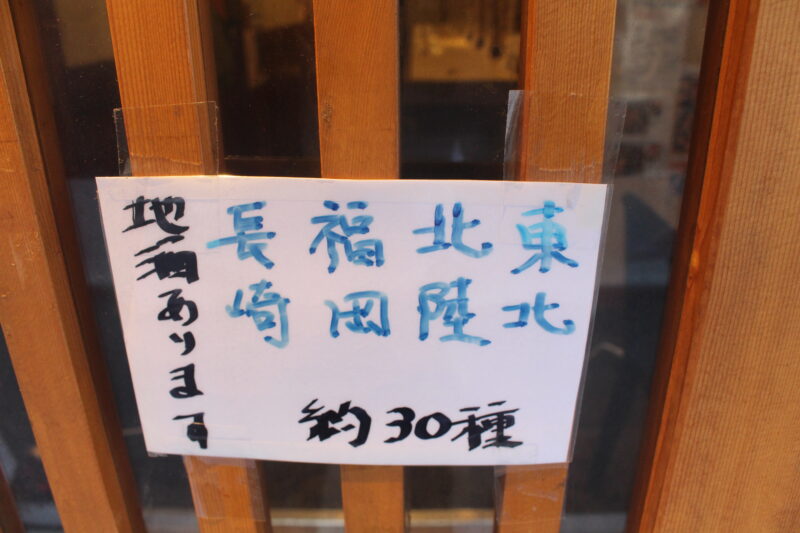 東北
北陸
福岡
長崎
約30種
地酒あります